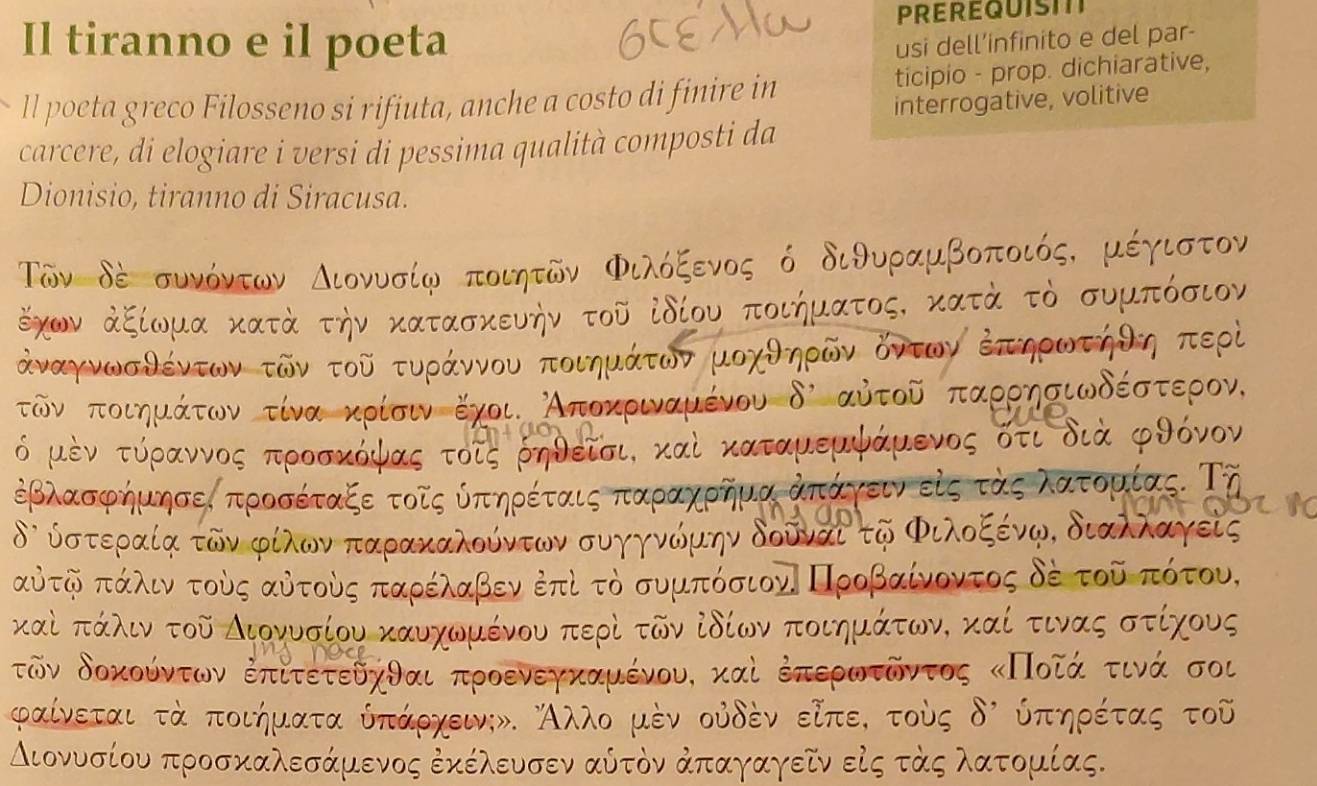 Il tiranno e il poeta
στέλλω
Il poeta greco Filosseno si rifiuta, anche a costo di finire in
carcere, di elogiare i versi di pessima qualità composti da
Dionisio, tiranno di Siracusa.
PREREQUISITI
usi dell'infinito e del par-
ticipio - prop. dichiarative,
interrogative, volitive
Τῶν δὲ συνόντων Διονυσίῳ ποιητῶν Φιλόξενος ὁ διθυραμβοποιός, μέγιστον
ἔχων ἀξίωμα κατὰ τὴν κατασκευὴν τοῦ ἰδίου ποιήματος, κατὰ τὸ συμπόσιον
ἀναγνωσθέντων τῶν τοῦ τυράννου ποιημάτων μοχθηρῶν ὄντων ἐπηρωτήθη περὶ
τῶν ποιημάτων τίνα κρίσιν ἔχοι. Ἀποκριναμένου δ' αὐτοῦ παρρησιωδέστερον,
che
ὁ μὲν τύραννος προσκόψας τοῖς ῥηθεῖσι, καὶ καταμεμψάμενος ὅτι διὰ φθόνον
ἐβλασφήμησε, προσέταξε τοῖς ὑπηρέταις παραχρῆμα ἀπάγειν εἰς τὰς λατομίας. Τῇ
δ' ὑστεραίᾳ τῶν φίλων παρακαλούντων συγγνώμην δοῦναι τῷ Φιλοξένῳ, διαλλαγεὶς
αὐτῷ πάλιν τοὺς αὐτοὺς παρέλαβεν ἐπὶ τὸ συμπόσιον. Προβαίνοντος δὲ τοῦ πότου,
καὶ πάλιν τοῦ Διονυσίου καυχωμένου περὶ τῶν ἰδίων ποιημάτων, καί τινας στίχους
τῶν δοκούντων ἐπιτετεῦχθαι προενεγκαμένου, καὶ ἐπερωτῶντος «Ποῖά τινά σοι
φαίνεται τὰ ποιήματα ὑπάρχειν;». Ἄλλο μὲν οὐδὲν εἶπε, τοὺς δ' ὑπηρέτας τοῦ
Διονυσίου προσκαλεσάμενος ἐκέλευσεν αὑτὸν ἀπαγαγεῖν εἰς τὰς λατομίας.